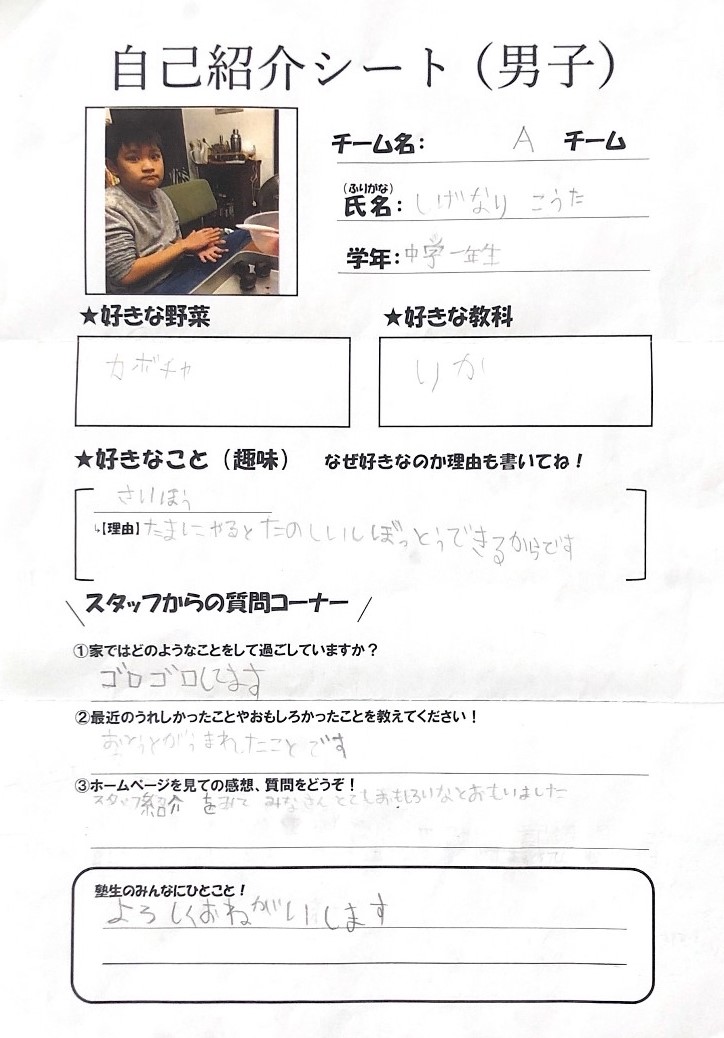 自己紹介シート（男子）
チーム名： A チーム
（ふりがな）
氏名： しげなり こうた
学年： 中学一年生
★好きな野菜
★好きな教科
カボチャ
りか
★好きなこと（趣味） なぜ好きなのか理由も書いてね！
さいほう
↳【理由】たまにやるとたのしいしぼっとうできるからです
スタッフからの質問コーナー
①家ではどのようなことをして過ごしていますか？
ゴロゴロしてます
②最近のうれしかったことやおもしろかったことを教えてください！
おとうとがうまれたことです
③ホームページを見ての感想、質問をどうぞ！
スタッフ紹介 をみて みなさん とてもおもしろいなとおもいました
塾生のみんなにひとこと！
よろしくおねがいします